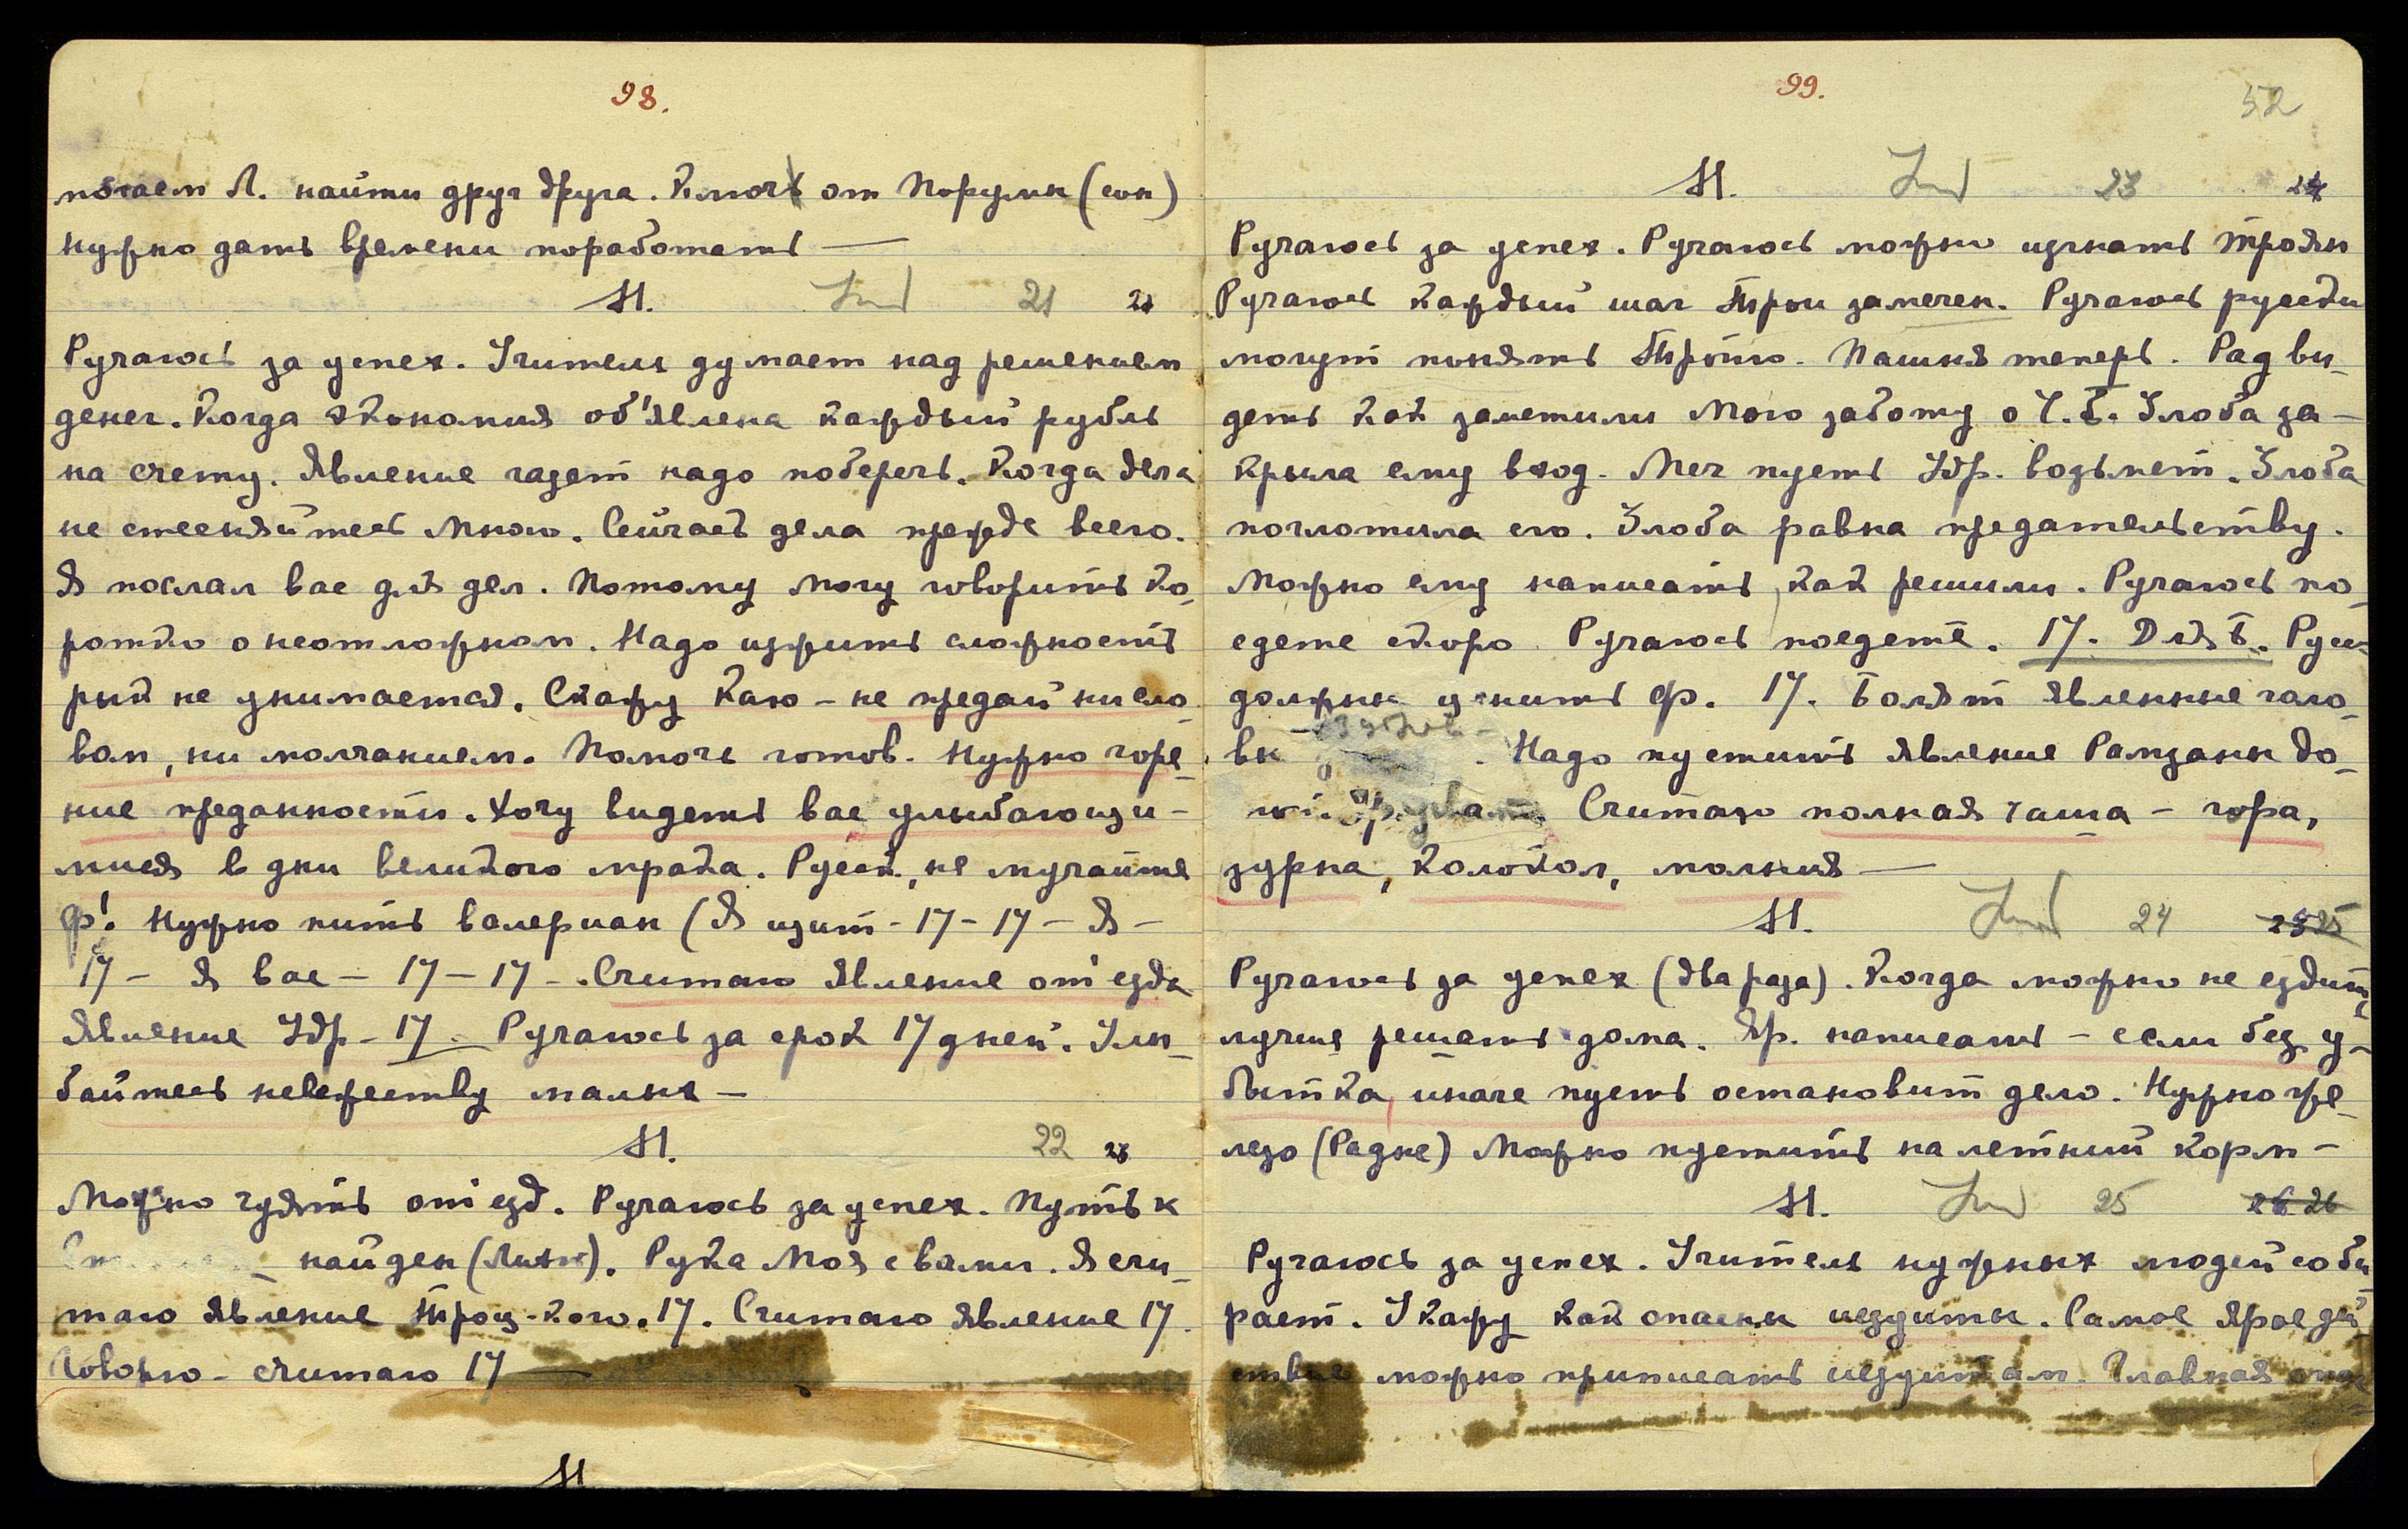 98.
помогаем Л. найти друг друга. Ключ от Порумы (сон)
нужно дать времени поработать —
М. 21 21
Ручаюсь за успех. Учитель думает над решением
денег. Когда экономия об'явлена каждый рубль
на счету. Явление газет надо поберечь. Когда дела
не стесняйтесь Мною. Сейчас дела прежде всего.
Я послал вас для дел. Потому могу говорить ко-
ротко о неотложном. Надо изжить сложность
рык не унимается. Скажу Каю - не предай ни сло-
вом, ни молчанием. Помочь готов. Нужно горе-
ние преданности. Хочу видеть вас улыбающи-
мися в дни великого мрака. Русск., не мучайте
Ф! Нужно пить валериан (Я щит - 17 - 17 - Я -
17 - Я вас - 17 - 17 -. Считаю явление от'езда
явление Удр - 17. Ручаюсь за срок 17 дней. Улы-
байтесь невежеству малых -
М. 22
Можно чуять от'езд. Ручаюсь за успех. Путь к
найден Рука Моя с вами. Я счи-
таю явление Троц-кого. 17. Считаю явление 17.
Говорю - считаю 17 —
М
99.
52
М. 23 24
Ручаюсь за успех. Ручаюсь можно изгнать троян
Ручаюсь каждый шаг Трои замечен. Ручаюсь русские
могут понять Трою. Пашня теперь. Рад ви-
деть как заметили Мою заботу о Ч.Б. Злоба за-
крыла ему вход. Меч пусть Удр. возьмет. Злоба
поглотила его. Злоба равна предательству.
Можно ему написать, как решили. Ручаюсь по-
едете скоро Ручаюсь поедете. 17. Для Б. Русс-
должны ценить Ф. 17. Болят явленные голо-
вы . Надо пустить явление Рамзаны до-
Считаю полная чаша - гора,
зурна, колокол, молния —
М. 24 25
Ручаюсь за успех (два раза). Когда можно не ездить,
лучше решать дома. Яр. написать - если без у-
бытка, иначе пусть остановит дело. Нужно же-
лезо (Радне) Можно пустить на летний корм -
М. 25 26
Ручаюсь за успех. Учитель нужных людей соби-
рает. Укажу как опасны иезуиты. Самое ярое дей-
ствие можно приписать иезуитам. Главная